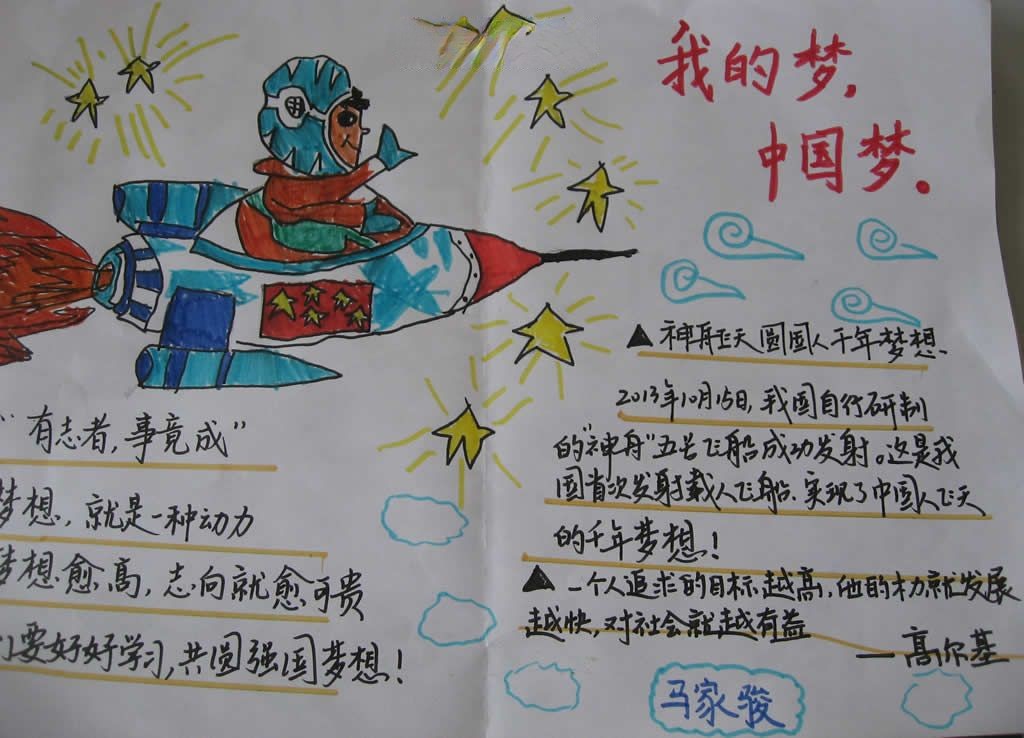 我的梦，
中国梦。
▲神舟飞天圆国人千年梦想
2013年10月15日，我国自行研制
的"神舟"五号飞船成功发射。这是我
国首次发射载人飞船，实现了中国人飞天
的千年梦想！
▲一个人追求的目标越高，他的才力就发展
越快，对社会就越有益
—高尔基
马家骏
"有志者，事竟成"
梦想，就是一种动力
梦想愈高，志向就愈可贵
们要好好学习，共圆强国梦想！